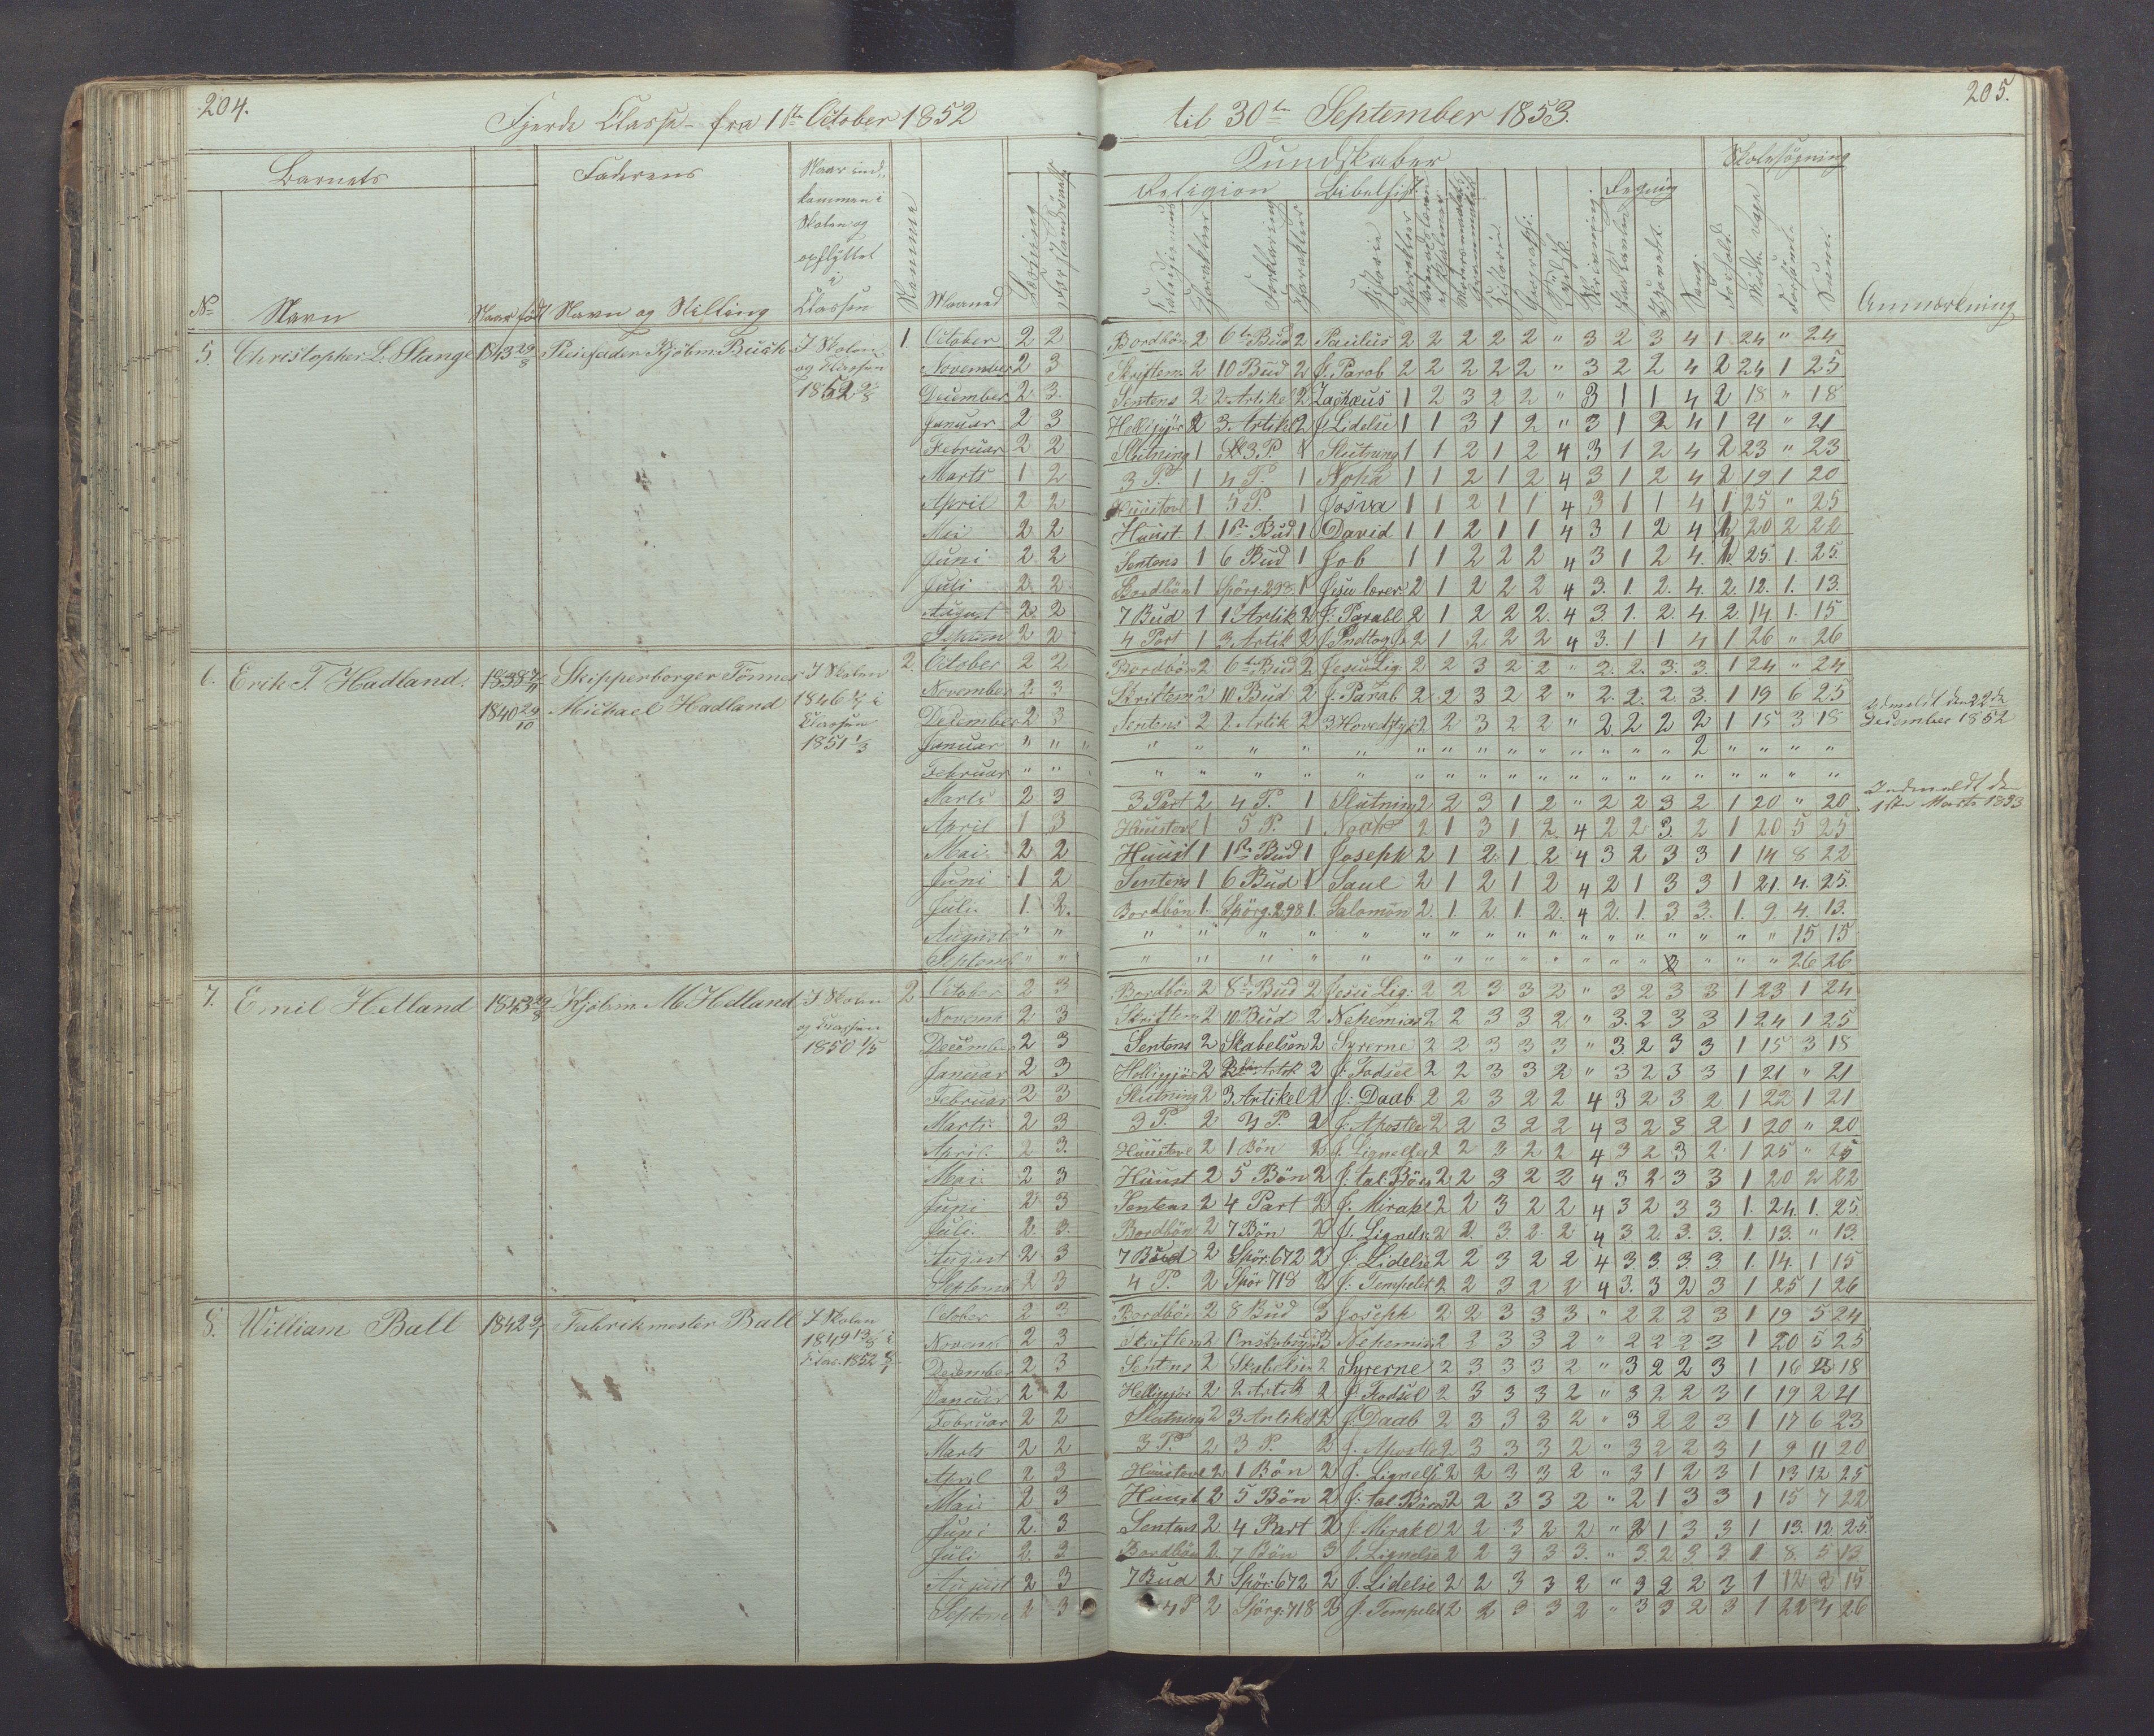 204.
Fjerde Classe - fra 1ste October 1852
Barnets
Faderens
Naar ind-
kommen i
Skolen og
opflyttet
i
Classen
Nummer
Maaned
Læsning
No
Navn
Naar født
Navn og Stilling
5. Christopher L. Stange 1843 29/8 Pleiefader Kjøbm: Busk I Skolen 1. October 2 2
og Klassen November 2 3
1852 December 2 3.
Januar 2 3
Februar 2 2
Marts 1 2
April 2 2
Mai 2 2
Juni 2 2
Juli 2 2
August 2 2
2 2
6. Erik T. Hadland. 1838 Skipperborger Tönnes I Skolen 2. October 2 2
1840 29/10 Michael Hadland 1846 i November 2 3
Classen December 2 3
1851 1/3 Januar " "
Februar " "
Marts 2 3
April 1 3
Mai 2 2
Juni 1 2
Juli 1. 2.
August " "
Septemb " "
7. Emil Helland 1843 Kjøbm M Helland I Skolen 2 October 2 3
og Classen Novemb 2 3
1850 1/5 Decemb 2 3
Januar 2 3
Februar 2 3
Marts 2 3
April 2 3.
Mai 2 3
Juni 2 3
Juli. 2. 3.
August 2 3
Septemb 2 3
8. William Ball 1842 Fabrikmester Ball I Skolen October 2 3
1849 i Novemb 2 3
Clas. 1852 December 2 3
Januar 2 2
Februar 2 2
Marts 2 2
April 2 3
Mai 2 3
Juni 2. 3
Juli 2. 3.
August 2 3
Septem 2 3
205.
til 30te September 1853.
Kundskaber
Skolesøgning
Religion
Bibelhist.
Regning
Forklaring
Historie
Sang.
Forhold.
Anmærkning
Bordbön 2 6te Bud 2 Paulus 2 2 2 2 2 " 3 2 3 4 1 24 " 24
Skriftem. 2 10 Bud 2 J. Parab 2 2 2 2 2 " 3 2 2 4 2 24 1 25
Sentens 2 2. Artikel 2 Zachæus 1 2 3 2 2 " 3 1 1 4 2 18 " 18
Helliggjör 2 3. Artikel 2 J. Lidelse 1 1 3 1 2 " 3 1 2 4 1 21 " 21
Slutning 1 3 P. 1 Slutning 1 1 2 1 2 4 3 1 2 4 2 23 " 23
3 P. 1 4 P. 1 Noha 1 1 2 1 2 4 3 1 2 4 2 19 1 20
Huustavl 1 5 P. 1 Josva 1 1 2 1 1 4 3 1 1 4 1 25 " 25
Huust 1 1ste Bud 1 David 1 1 2 1 1 4 3 1 2 4 1 20 2 22
Sentens 1 6 Bud 1 Job 1 1 2 2 2 4 3 1 2 4. 1. 25. 1. 25.
Bordbön 1 Spörg. 298 1 Jesu lærer 2 1 2 2 2 4 3. 1. 2. 4. 2. 12. 1. 13.
7 Bud 1 1 Artik 2 J. Parabl 2 1 2 2 2. 4 3 1. 2. 4 2. 14 1. 15
4 Part 1 3. Artik 2 J. Indtog 2 1 2 2 2 4 3. 1 1 4 1 26 " 26
Bordbön 2 6te Bud 2 Jesu Lig: 2 2 3 2 2 " 2. 2. 3. 3. 1 24 " 24
Skriftem 2 10 Bud 2 J. Parab 2 2 3 2 2 " 2. 2. 2. 3. 1 19 6 25
Sentens 2 2. Artik 2 3 Hovedsty 2 2 3 2 2 " 2 2 2 2 1 15 3 18
Udmeldt den 22de
December 1852
3 Part 2 4 P. 1 Slutning 2 2 3 1 2 " 2 2 3 2 1 20 " 20
Indmeldt den
1ste Marts 1853
Huustavl 1 5 P. 1 Noah 2 1 3 1 2 4 2 2 3. 2 1 20 5 25
Huust 1 1ste Bud 1 Joseph 2 1 2 1 2 4 3 2 3 3 1 14 8 22
Sentens 1 6 Bud 1 Saul 2 1 2 1 2 4 2 1 3 3 1 21. 4. 25.
Bordbön 1. Spörg. 298 1. Salomon 2. 1. 2. 1. 2. 4 2. 1. 3 3. 1. 9. 4. 13.
15 15
26 26
Bordbön 2 8 Bud 2 Jesu Lig: 2 2 3 3 2 " 3 2 3 3 1 23 1 24
Skriftem 2 10. Bud 2 Nehemias 2 2 3 3 2 " 3. 2 3 3 1 24 1 25
Sentens 2 Skabelsen 2 Syrerne 2 2 3 3 3 " 3 2 3 3 1 15 3 18
Helliggjör 2 2 Artik 2 J. Födsel 2 2 3 3 2 " 3 2 3 3 1 21 " 21
Slutning 2 3 Artikel 2 J: Daab 2 2 3 2 2 4 3 2 3 2 1 22 1 21
3 P. 2 4 P. 2 J. Apostle 2 2 3 2 2 4 3 2 3 2 1 20 " 20
Huustavl 2 1 Bön 2 J. Lignelse 2 2 3 2 2 4 3 2 3 2 1 25 " 25
Huust 2 5 Bön 2 J: tal: Börn 2 2 3 2 2 4 3 2 3 3 1 20 2 22
Sentens 2 4 Part 2 J. Mirakl 2 2 3 2 2 4 3 2 3 3 1. 24. 1. 25.
Bordbön 2 7 Bön 2 J. Lignelse 2 2. 3. 2. 2 4 3. 2. 3. 3. 1. 13. " 13.
7 Bud 2 Spör: 672 2 J. Lidelse 2 2 3 2 2 4 3 3 3 3 1. 14. 1 15
4 P. 2 Spör 718 2 J: Tempelet 2 2 3 2 2 4 3. 3 2 3 1 25 1 26
Bordbön 2 8 Bud 3 Joseph 2 2 3 3 3 " 2 2 2 3 1 19 5 24
Skriftem 2 3 Nehemias 2 2 3 3 2 " 2 2 2 3 1 20 5 25
Sentens 2 Skabelsen 2 Syrerne 2 3 3 3 2 " 3 2 2 3 1 16 2 18
Helliggjör 2 2 Artik 2 J Födsel 2 3 3 3 2 " 3 2 2 3 1 19 2 21
Slutning 2 3 Artikel 2 J: Daab 2 3 3 3 2 " 3 2 2 3 1 17 6 23
3 P. 2 3 P. 2 J. Apostle 2 3 3 3 2 " 3 2 2 3 1 9 11 20
Huustavl 2 1 Bön 2 J. Lignels 2 2 3 3 2 " 3 1 2 3 1 13 12 25
Huust 2 5 Bön 2 J: tal Börn 2 2 3 3 2 " 2 1 3 3 1 15 7 22
Sentens 2 4 Part 2 J. Mirakl 2 2 3 2 2 " 2 1 3 3 1 13. 12. 25.
Bordbön 2. 7 Bön 3 J. Lignelse 2 2 3 3 3. " 3. 2. 3 3. 1. 8. 5 13.
7 Bud 2 Spör: 672 2 J. Lidelse 2 2 3 3 2 " 3 2 2 3 1 12 3 15
4 P 2 Spörg: 718 2 J. Tempelet 2 2 3 3 2 " 3 3 2 3 1 22 4 26